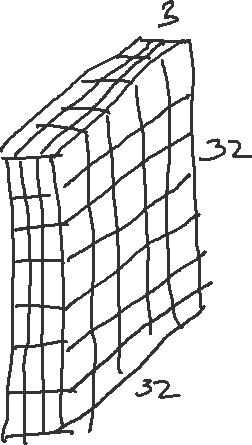 3
32
32